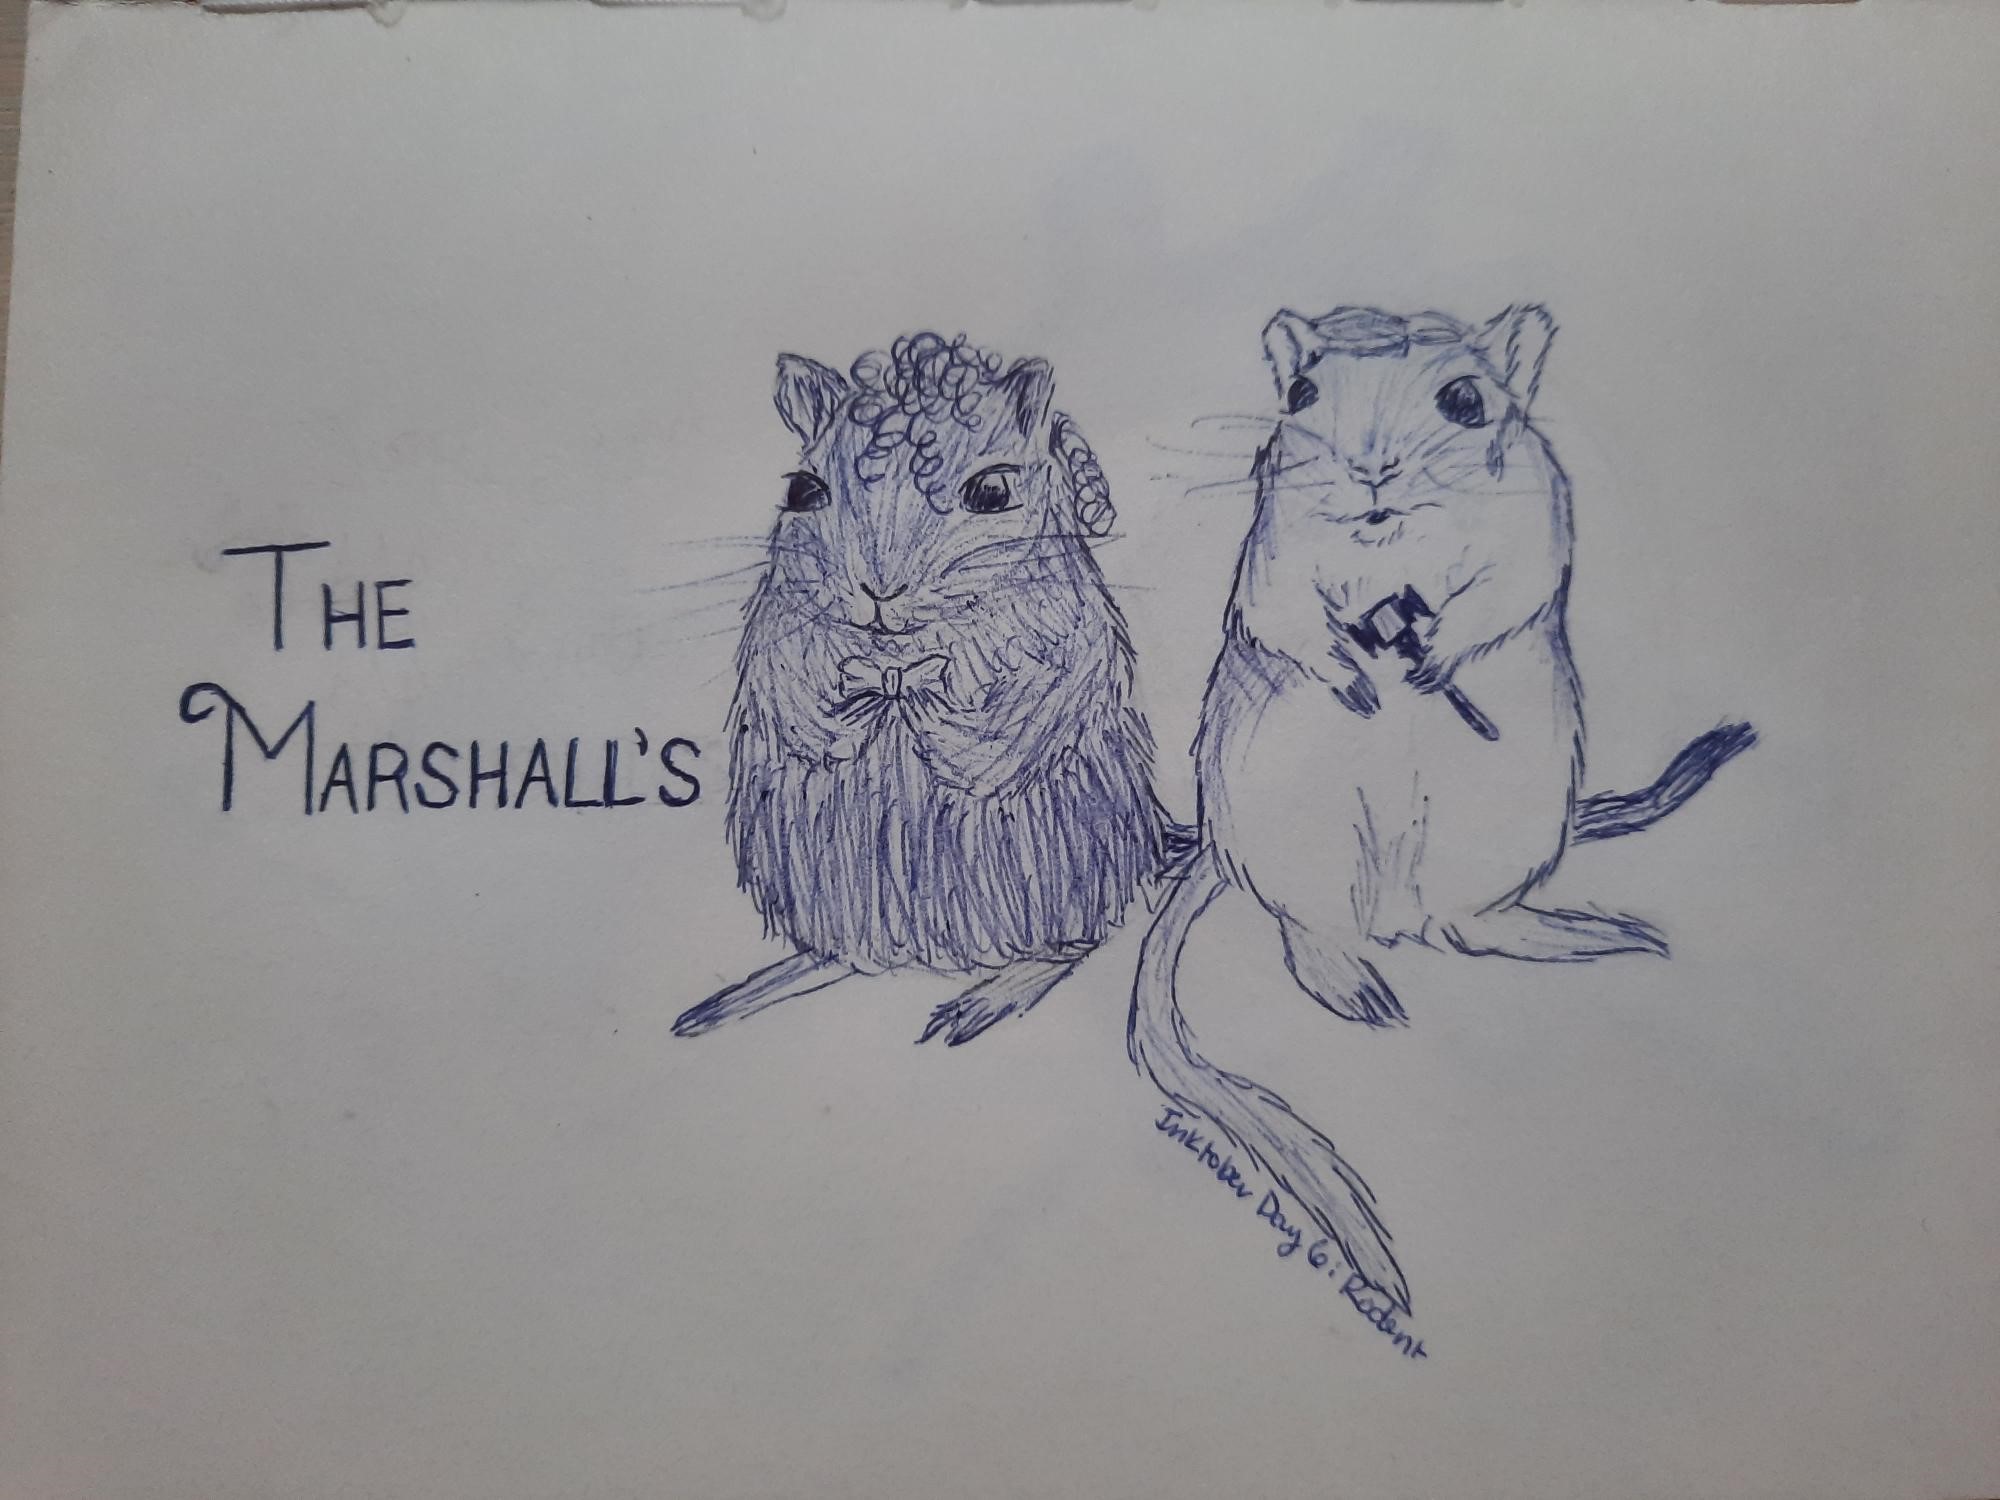 THE
MARSHALL'S
Inktober Day 6: Rodent